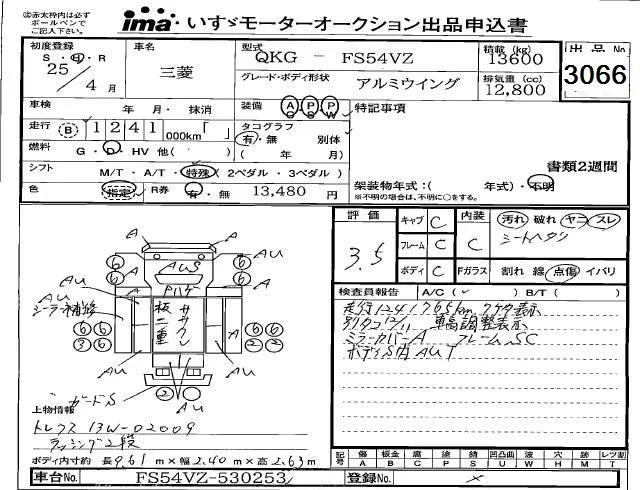 ※赤太枠内は必ず
ボールペンで
ご記入下さい。
ima いすゞモーターオークション出品申込書
初度登録 S・H・R 25 / 4 月
車名 三菱
型式 QKG - FS54VZ
積載 (kg) 13600
出品No 3066
グレード・ボディ形状 アルミウイング
排気量 (cc) 12,800
車検 年・月・抹消
装備 AC PS PW
特記事項
走行 B 1241 000km「 」
タコグラフ 有・無 別体
( 年 月)
燃料 G・D・HV 他( )
書類2週間
シフト M/T・A/T・特殊 (2ペダル・3ペダル)
架装物年式:( 年式)・不明
※不明の場合は、不明に○をする。
色 指定 R券 有・無 13,480 円
評価 3.5
キャブ C
フレーム C
ボディ C
内装 C
汚れ 破れ ヤニ スレ
シートヘタリ
Fガラス 割れ 線 点傷 イパリ
検査員報告 A/C(✓) B/T( )
走行1241765km
車高調整表示
ミラーカバーA フレームSC
ボディS内AUT
A A
AU AU
6 6 6 6
AUS
A A
Pハゲ
AU AU
シーラー補修
板二重
A
6 6 6 6
3 6 2 2
AU AU
ガードS
2
AU
上物情報
トレクス 13W-02009
ラッシング2段
ボディ内寸約 長9.61m×幅2.40m×高2.63m
記号 傷A 板金B 腐C 塗P 錆S 凹凸曲U 波W 穴H 跡M レツ割T
車台No. FS54VZ-530253
登録No. ×